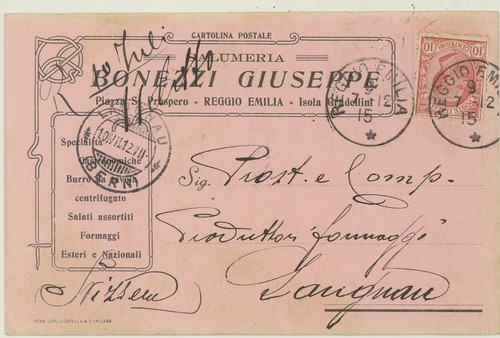 CARTOLINA POSTALE
SALUMERIA
BONEZZI GIUSEPPE
Piazza S. Prospero - REGGIO EMILIA - Isola Guidelini
Specialità
Gastronomiche
Burro da tavola
centrifugato
Salati assortiti
Formaggi
Esteri e Nazionali
10 Juli
REGGIO EMILIA
9
7-12
15
REGGIO EMILIA
9
12
15
10
CENTESIMI
10
LANGNAU
10.VII.12.VII-
(BERN)
Sig. Prost. e Comp.
Produttori formaggi
Langnau
Svizzera